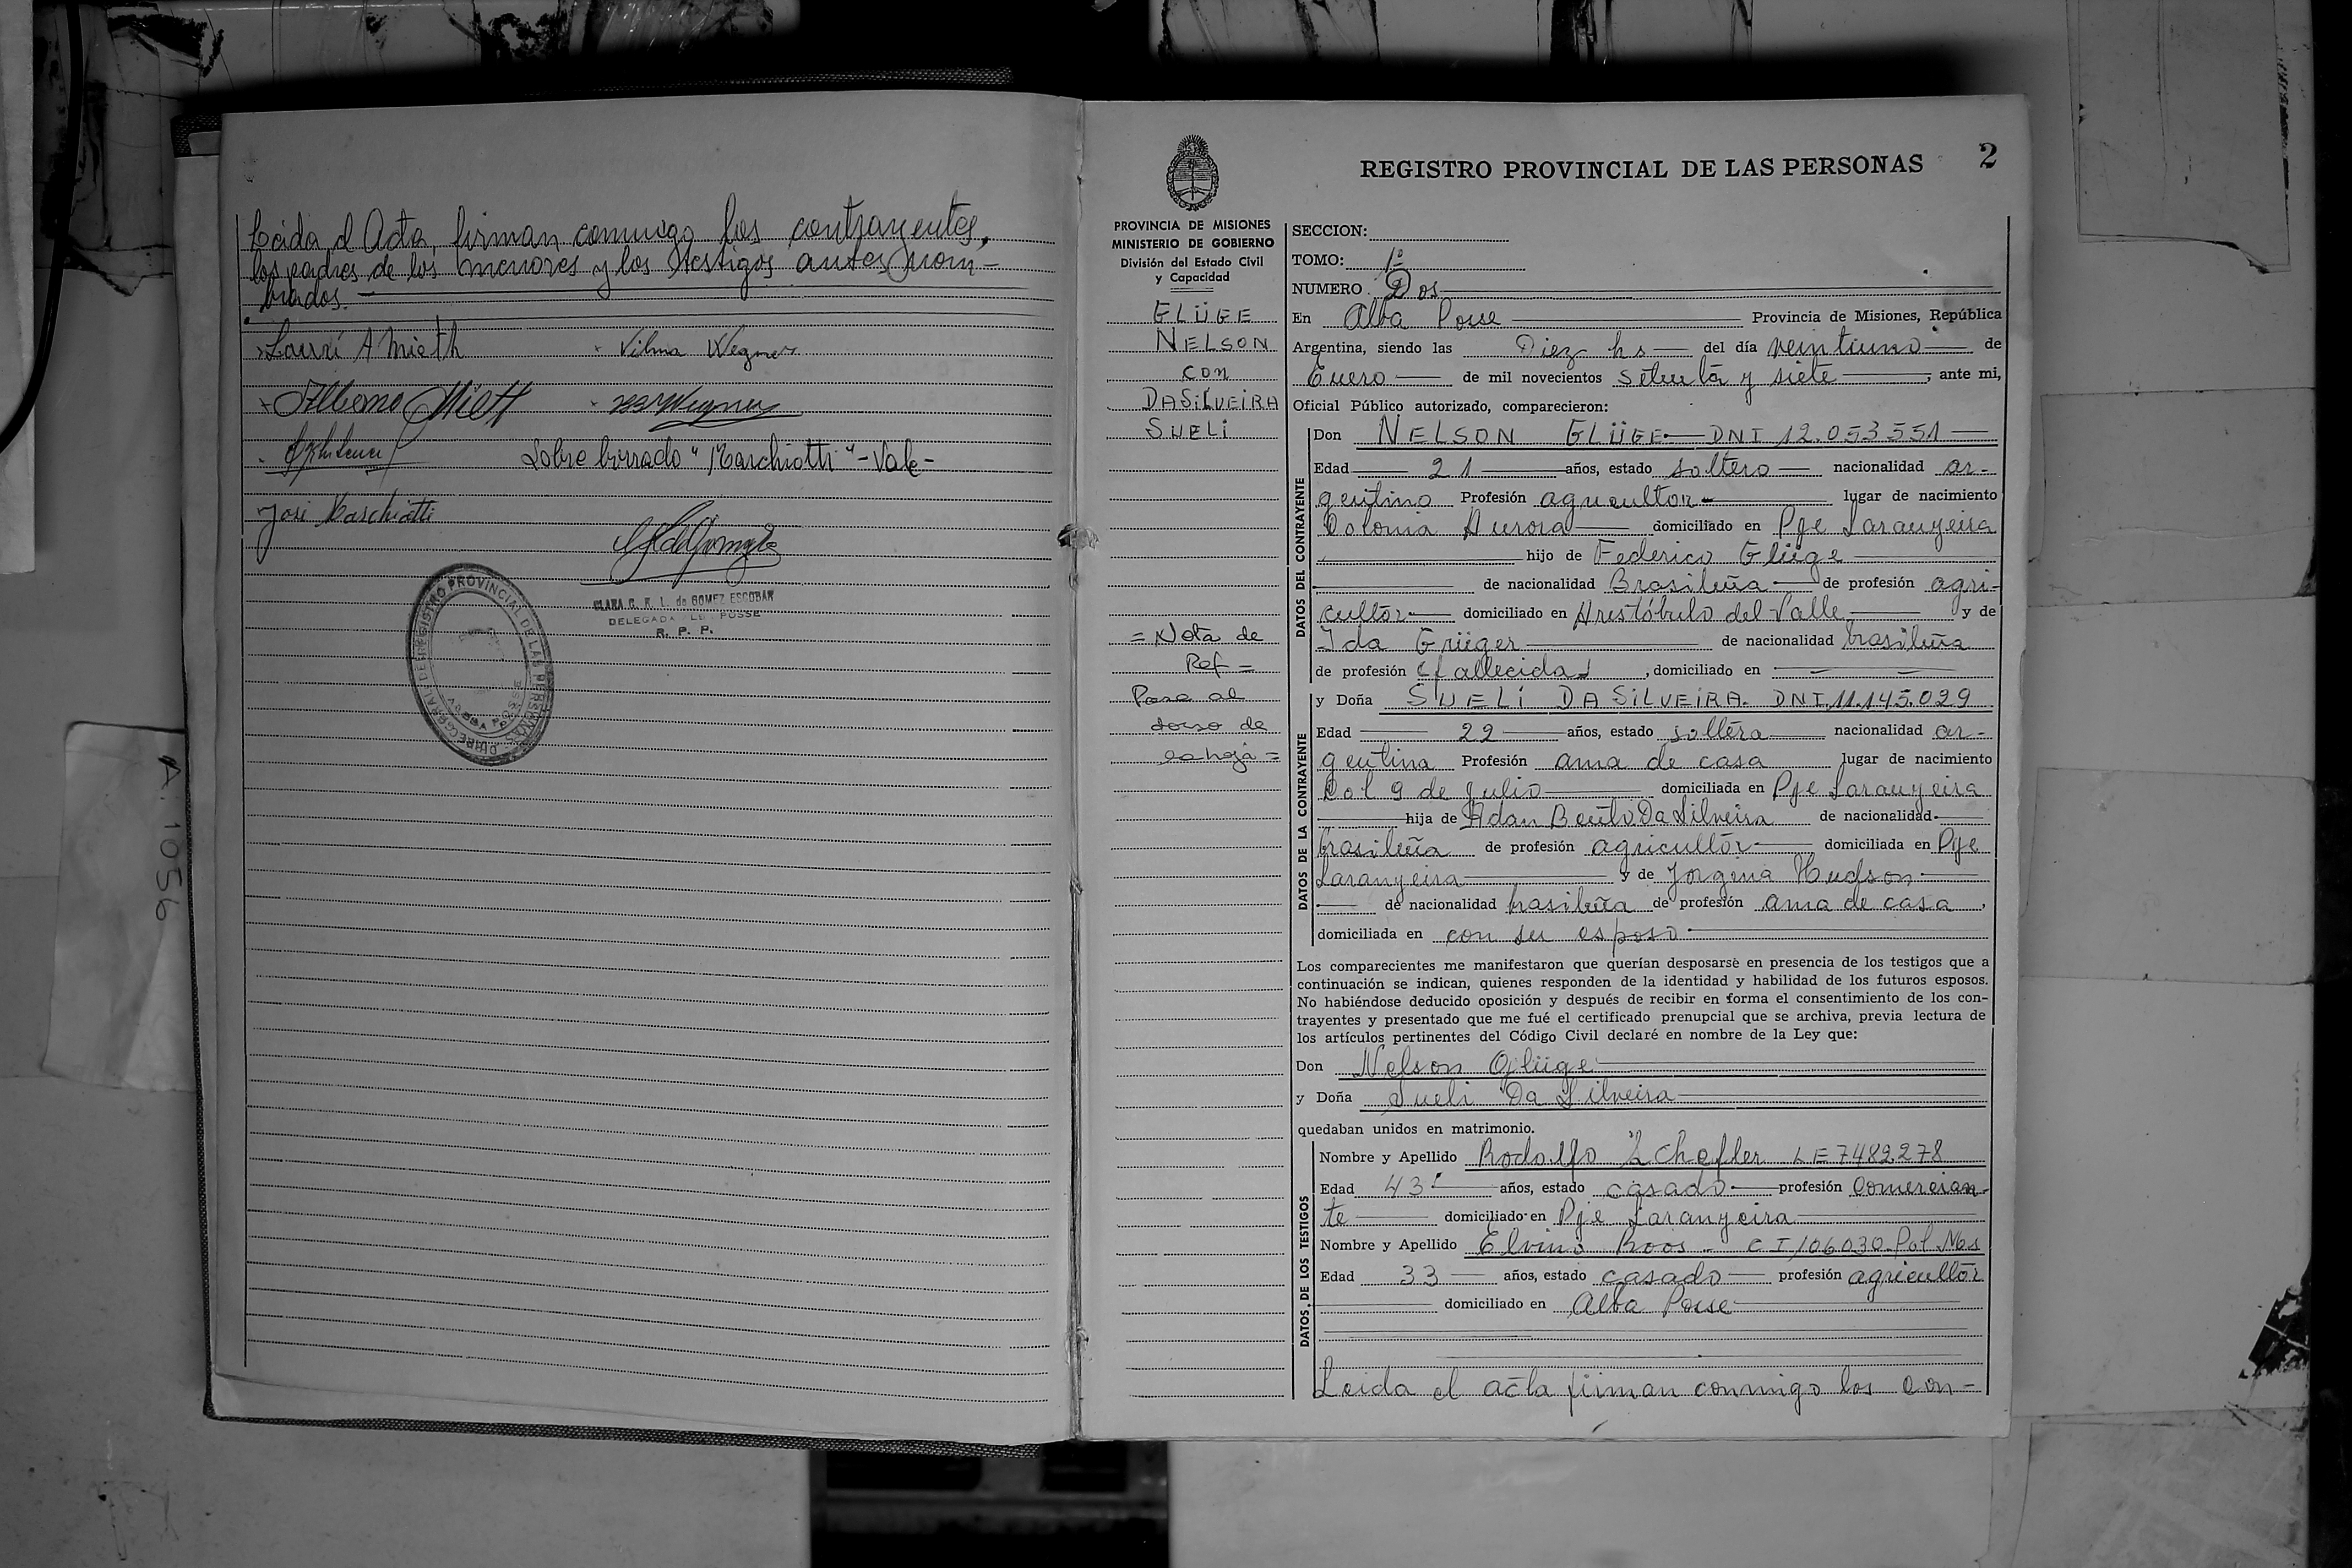 Leida el Acta, firman conmigo los contrayentes,
los padres de los menores y los testigos antes nom-
brados.
Laurí A Mieth
Vilma Wegner
Sobre borrado "Marchiotti" - Vale -
José Marchiotti
CLARA G. R. L. de GOMEZ ESCOBAR
DELEGADA ALBA POSSE
R. P. P.
REGISTRO PROVINCIAL DE LAS PERSONAS
ALBA POSSE
A. 1056
REGISTRO PROVINCIAL DE LAS PERSONAS
2
PROVINCIA DE MISIONES
MINISTERIO DE GOBIERNO
División del Estado Civil
y Capacidad
GLÜGE
NELSON
con
DASILVEIRA
SUELI
= Nota de
Ref =
Pasa al
dorso de
la hoja =
SECCION:
TOMO: 1º
NUMERO Dos
En Alba Posse Provincia de Misiones, República
Argentina, siendo las Diez hs del día veintiuno de
Enero de mil novecientos setenta y siete, ante mi,
Oficial Público autorizado, comparecieron:
DATOS DEL CONTRAYENTE
Don NELSON GLÜGE DNI 12.053.551
Edad 21 años, estado soltero nacionalidad ar-
gentino Profesión agricultor lugar de nacimiento
Colonia Aurora domiciliado en Pje Laranyeira
hijo de Federico Glüge
de nacionalidad Brasileña de profesión agri-
cultor domiciliado en Aristóbulo del Valle y de
Ida Grüger de nacionalidad brasileña
de profesión (fallecida), domiciliado en
DATOS DE LA CONTRAYENTE
y Doña SUELI DA SILVEIRA. DNI. 11.145.029
Edad 22 años, estado soltera nacionalidad ar-
gentina Profesión ama de casa lugar de nacimiento
Col 9 de Julio domiciliada en Pje Laranyeira
hija de Adan Bento Da Silveira de nacionalidad
brasileña de profesión agricultor domiciliada en Pje
Laranyeira y de Jorgina Hudson
de nacionalidad brasileña de profesión ama de casa,
domiciliada en con su esposo
Los comparecientes me manifestaron que querían desposarse en presencia de los testigos que a
continuación se indican, quienes responden de la identidad y habilidad de los futuros esposos.
No habiéndose deducido oposición y después de recibir en forma el consentimiento de los con-
trayentes y presentado que me fué el certificado prenupcial que se archiva, previa lectura de
los artículos pertinentes del Código Civil declaré en nombre de la Ley que:
Don Nelson Glüge
y Doña Sueli Da Silveira
quedaban unidos en matrimonio.
DATOS DE LOS TESTIGOS
Nombre y Apellido Rodolfo Schefler LE 7482278
Edad 43 años, estado casado profesión Comercian-
te domiciliado en Pje Laranyeira
Nombre y Apellido Elvino Roos - CI 106030 Pol Mes
Edad 33 años, estado casado profesión agricultor
domiciliado en Alba Posse
Leida el acta firman conmigo los con-